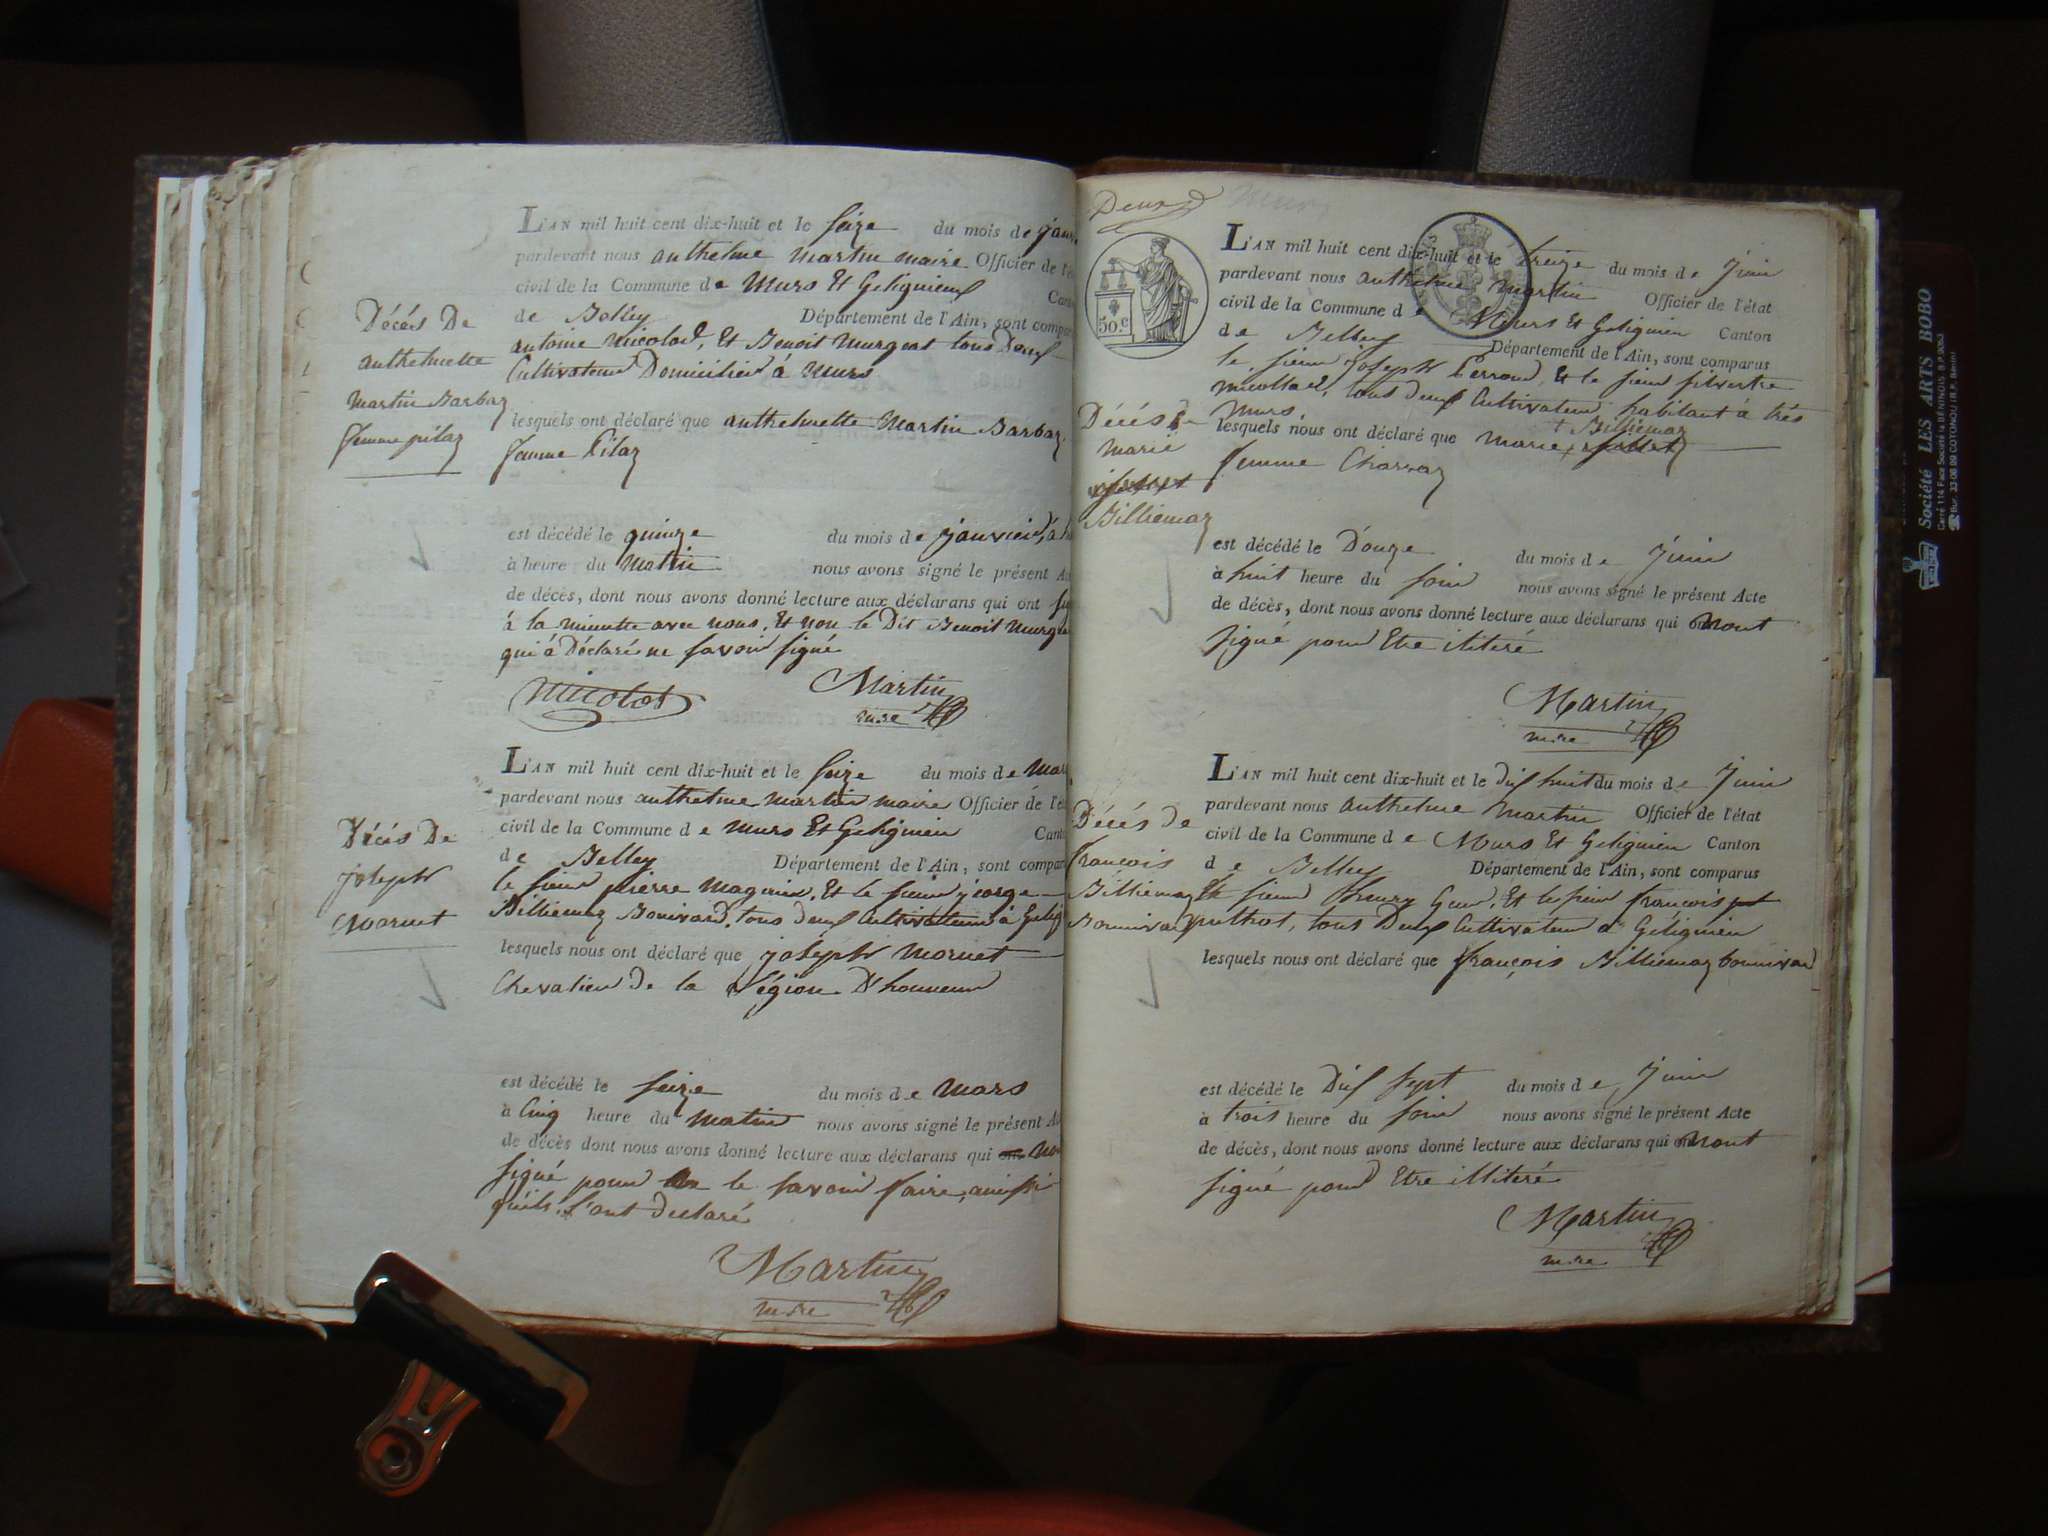 L'AN mil huit cent dix-huit et le seize du mois de
pardevant nous anthelme martin maire Officier de
civil de la Commune de Murs Et Gelignieux
de Belley Département de l'Ain, sont
antoine micolod, Et Benoit murgeat tous Deux
Cultivateurs Domiciliés à Murs
Décés De
anthelmette
martin Barbaz
femme pilaz
lesquels ont déclaré que anthelmette Martin Barbaz
femme Pilaz
est décédé le quinze du mois de janvier, à
à heure du matin nous avons signé le présent
de décès, dont nous avons donné lecture aux déclarans qui ont
à la minutte avec nous, Et non le Dit Benoit
qui à Déclaré ne savoir signé
micolod Martin
mire
L'AN mil huit cent dix-huit et le seize du mois de
pardevant nous anthelme martin maire Officier de
civil de la Commune de Murs Et Gelignieu
de Belley Département de l'Ain, sont
le sieur pierre Magnin, Et le sieur george
Billiemaz Bonivard, tous deux Cultivateurs à
Décés De
joseph
Mornet
lesquels nous ont déclaré que joseph Mornet
Chevalier De la Légion D'honneur
est décédé le seize du mois de Mars
à Cinq heure du matin nous avons signé le présent
de décès dont nous avons donné lecture aux déclarans qui
signé pour ne le savoir faire, ainssi
quils l'ont declaré
Martin
mire
Deux
Murs
50.c
L'AN mil huit cent dix-huit et le treize du mois de Juin
pardevant nous anthelme Martin Officier de l'état
civil de la Commune de Murs Et Gelignieu Canton
de Belley Département de l'Ain, sont comparus
le sieur joseph Perroud, Et le sieur silvestre
micollad, tous deux Cultivateurs habitant à très
Murs.
Décés
marie
Billiemaz
Billiemaz
lesquels nous ont déclaré que Marie
femme Charvaz
est décédé le Douze du mois de Juin
à huit heure du soir nous avons signé le présent Acte
de décès, dont nous avons donné lecture aux déclarans qui nont
signé pour Etre iliteré
Martin
mire
L'AN mil huit cent dix-huit et le dix huit du mois de Juin
pardevant nous anthelme Martin Officier de l'état
civil de la Commune de Murs Et Gelignieu Canton
de Belley Département de l'Ain, sont comparus
sieur et le sieur françois
tous Deux Cultivateurs à Gelignieu
Décés de
françois
Billiemaz
Bonnivard
lesquels nous ont déclaré que françois Billiemaz bonnivard
est décédé le Dix sept du mois de Juin
à trois heure du soir nous avons signé le présent Acte
de décès, dont nous avons donné lecture aux déclarans qui nont
signé pour Etre illiteré
Martin
mire
Société LES ARTS BOBO